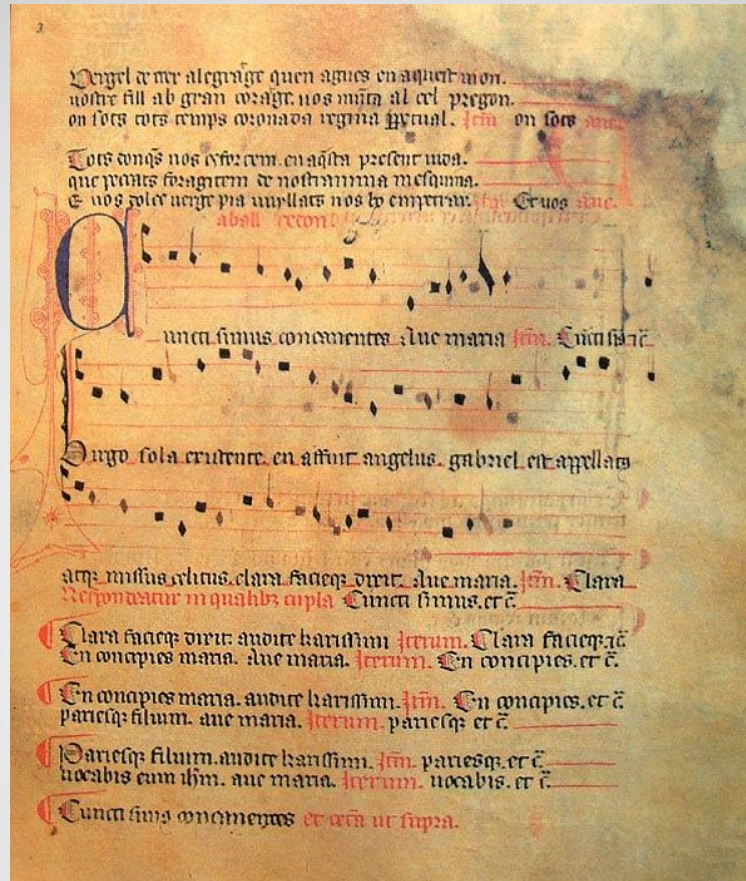 3
Vergel de tter alegrage quen agues en aquest mon.
vostre fill ab gran corage. vos munta al cel pregon.
on sots tots temps coronada regina ppetual. Itm on sots aue
Tots donqs nos esforcem. en aqsta present uida.
que peccats foragitem de nostranima mesquina.
E vos dolce uerge pia vuyllats nos ho empetrar. Et uos aue.
a ball redon
Cuncti simus concanentes. Aue maria Itm. Cuncti sim 7c̄
Virgo sola existente. en affuit angelus. gabriel est appellatus
atqz missus celitus. clara facieqz dixit. Aue maria. Itm. Clara
Respondeatur in qualibz cupla Cuncti simus. et c̄.
Clara facieqz dixit. audite karissimi Iterum. Clara facieqz. 7c̄.
En concipies maria. Aue maria. Iterum. En concipies. et c̄.
En concipies maria. audite karissimi. Itm. En concipies. et c̄.
pariesqz filium. aue maria. Iterum. pariesqz et c̄.
Pariesqz filium. audite karissimi. Itm. pariesqz. et c̄.
uocabis eum ihm. aue maria. Iterum. uocabis. et c̄.
Cuncti simus concanentes et cetera ut supra.